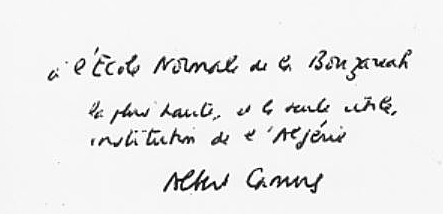 à l'École Normale de la Bouzaréah
la plus haute, et la seule utile,
institution de l'Algérie
Albert Camus